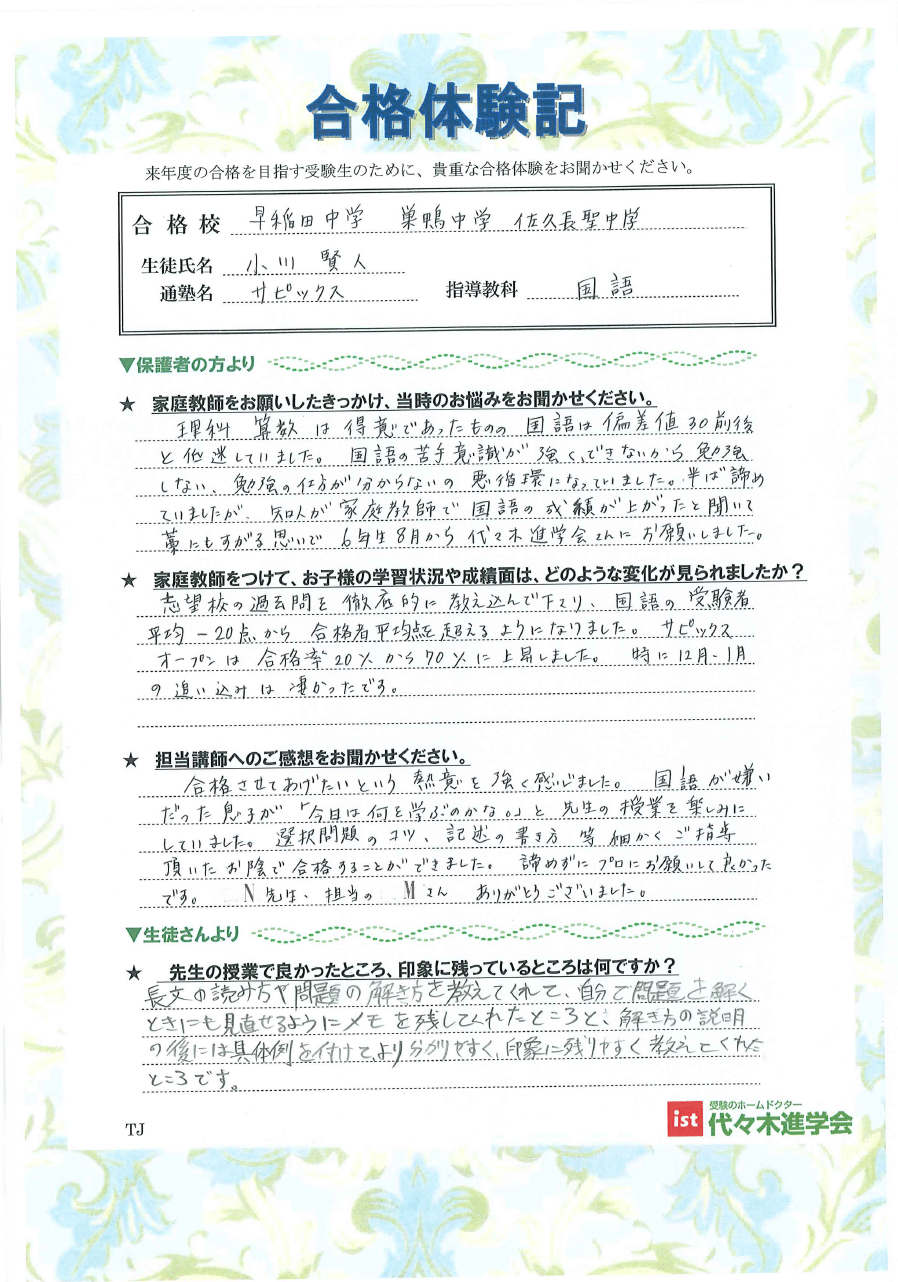 合格体験記
来年度の合格を目指す受験生のために、貴重な合格体験をお聞かせください。
合格校 早稲田中学 巣鴨中学 佐久長聖中学
生徒氏名 小川 賢人
通塾名 サピックス 指導教科 国語
▼保護者の方より
★ 家庭教師をお願いしたきっかけ、当時のお悩みをお聞かせください。
理科 算数は得意であったものの 国語は偏差値30前後
と低迷していました。 国語の苦手意識が強く、できないから勉強
しない、勉強の仕方が分からないの悪循環になっていました。半ば諦め
ていましたが、知人が家庭教師で国語の成績が上がったと聞いて
藁にもすがる思いで 6年生8月から代々木進学会さんにお願いしました。
★ 家庭教師をつけて、お子様の学習状況や成績面は、どのような変化が見られましたか？
志望校の過去問を徹底的に教え込んで下さり、国語の受験者
平均－20点から合格者平均点を超えるようになりました。 サピックス
オープンは合格率20%から70%に上昇しました。 特に12月、1月
の追い込みは凄かったです。
★ 担当講師へのご感想をお聞かせください。
合格させてあげたいという熱意を強く感じました。 国語が嫌い
だった息子が「今日は何を学ぶのかな。」と先生の授業を楽しみに
していました。選択問題のコツ、記述の書き方 等細かくご指導
頂いたお陰で合格することができました。 諦めずにプロにお願いして良かった
です。 N先生、担当のMさん ありがとうございました。
▼生徒さんより
★ 先生の授業で良かったところ、印象に残っているところは何ですか？
長文の読み方や問題の解き方を教えてくれて、自分で問題を解く
ときにも見直せるようにメモを残してくれたところと、解き方の説明
の後には具体例を付けて、より分かりやすく、印象に残りやすく教えてくれた
ところです。
TJ
ist 受験のホームドクター
代々木進学会